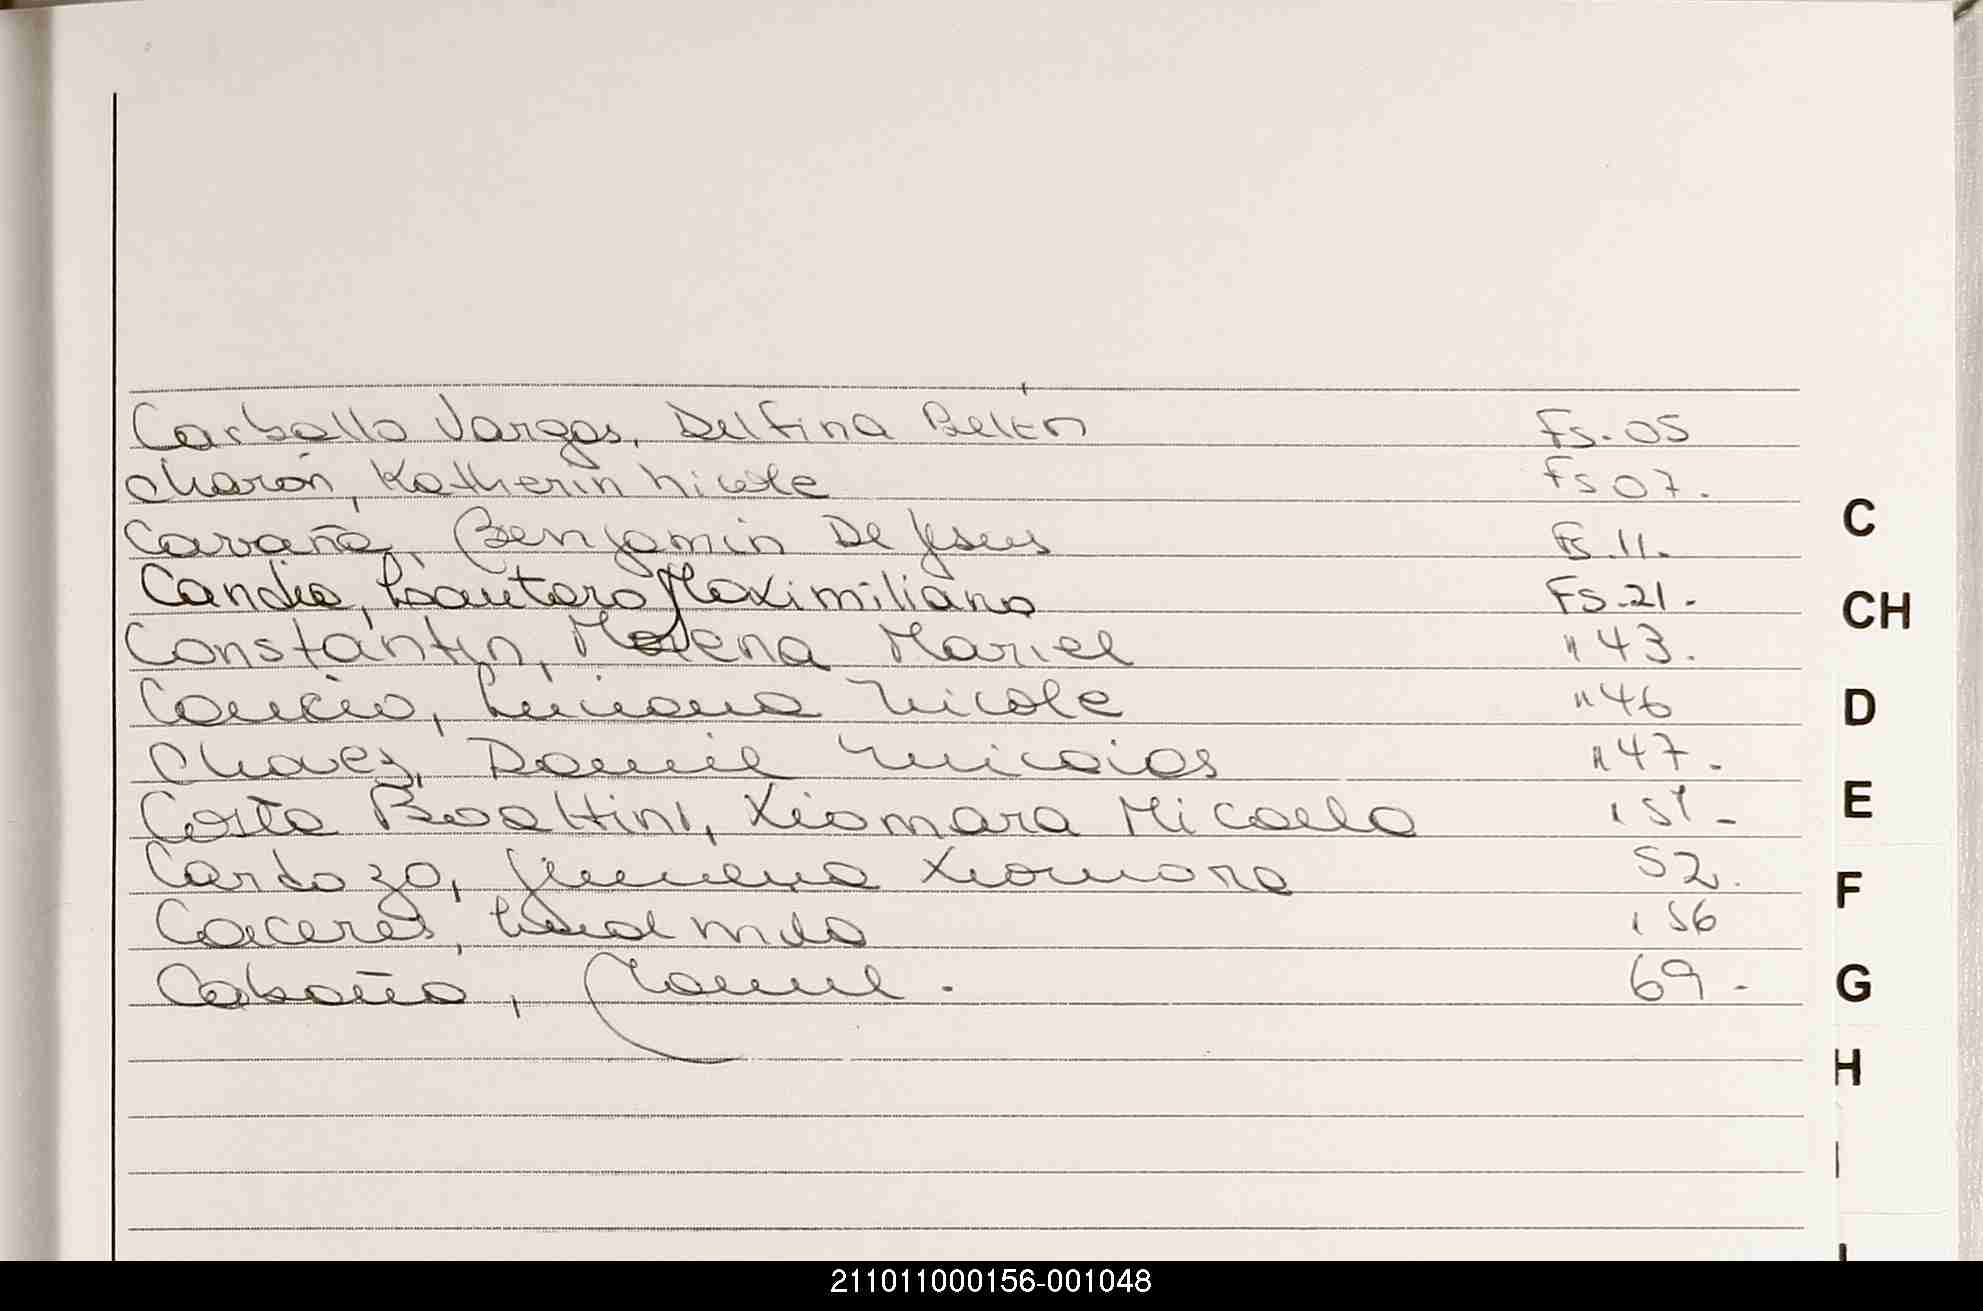 Carballo Vargas, Delfina Belén Fs. 05
Charón, Katherin Nicole Fs 07.
Cavaña, Benjamin De Jesus Fs. 11.
Candia, Lautaro Maximiliano Fs. 21.
Constantin, Morena Mariel " 43.
Cancio, Luciana Nicole " 46
Chavez, Daniel Nicolas " 47.
Costa Boattini, Xiomara Micaela 51.
Cardozo, Jimena Xiomara 52.
Caceres, 56
Cabaña, 69.
C
CH
D
E
F
G
H
I
211011000156-001048